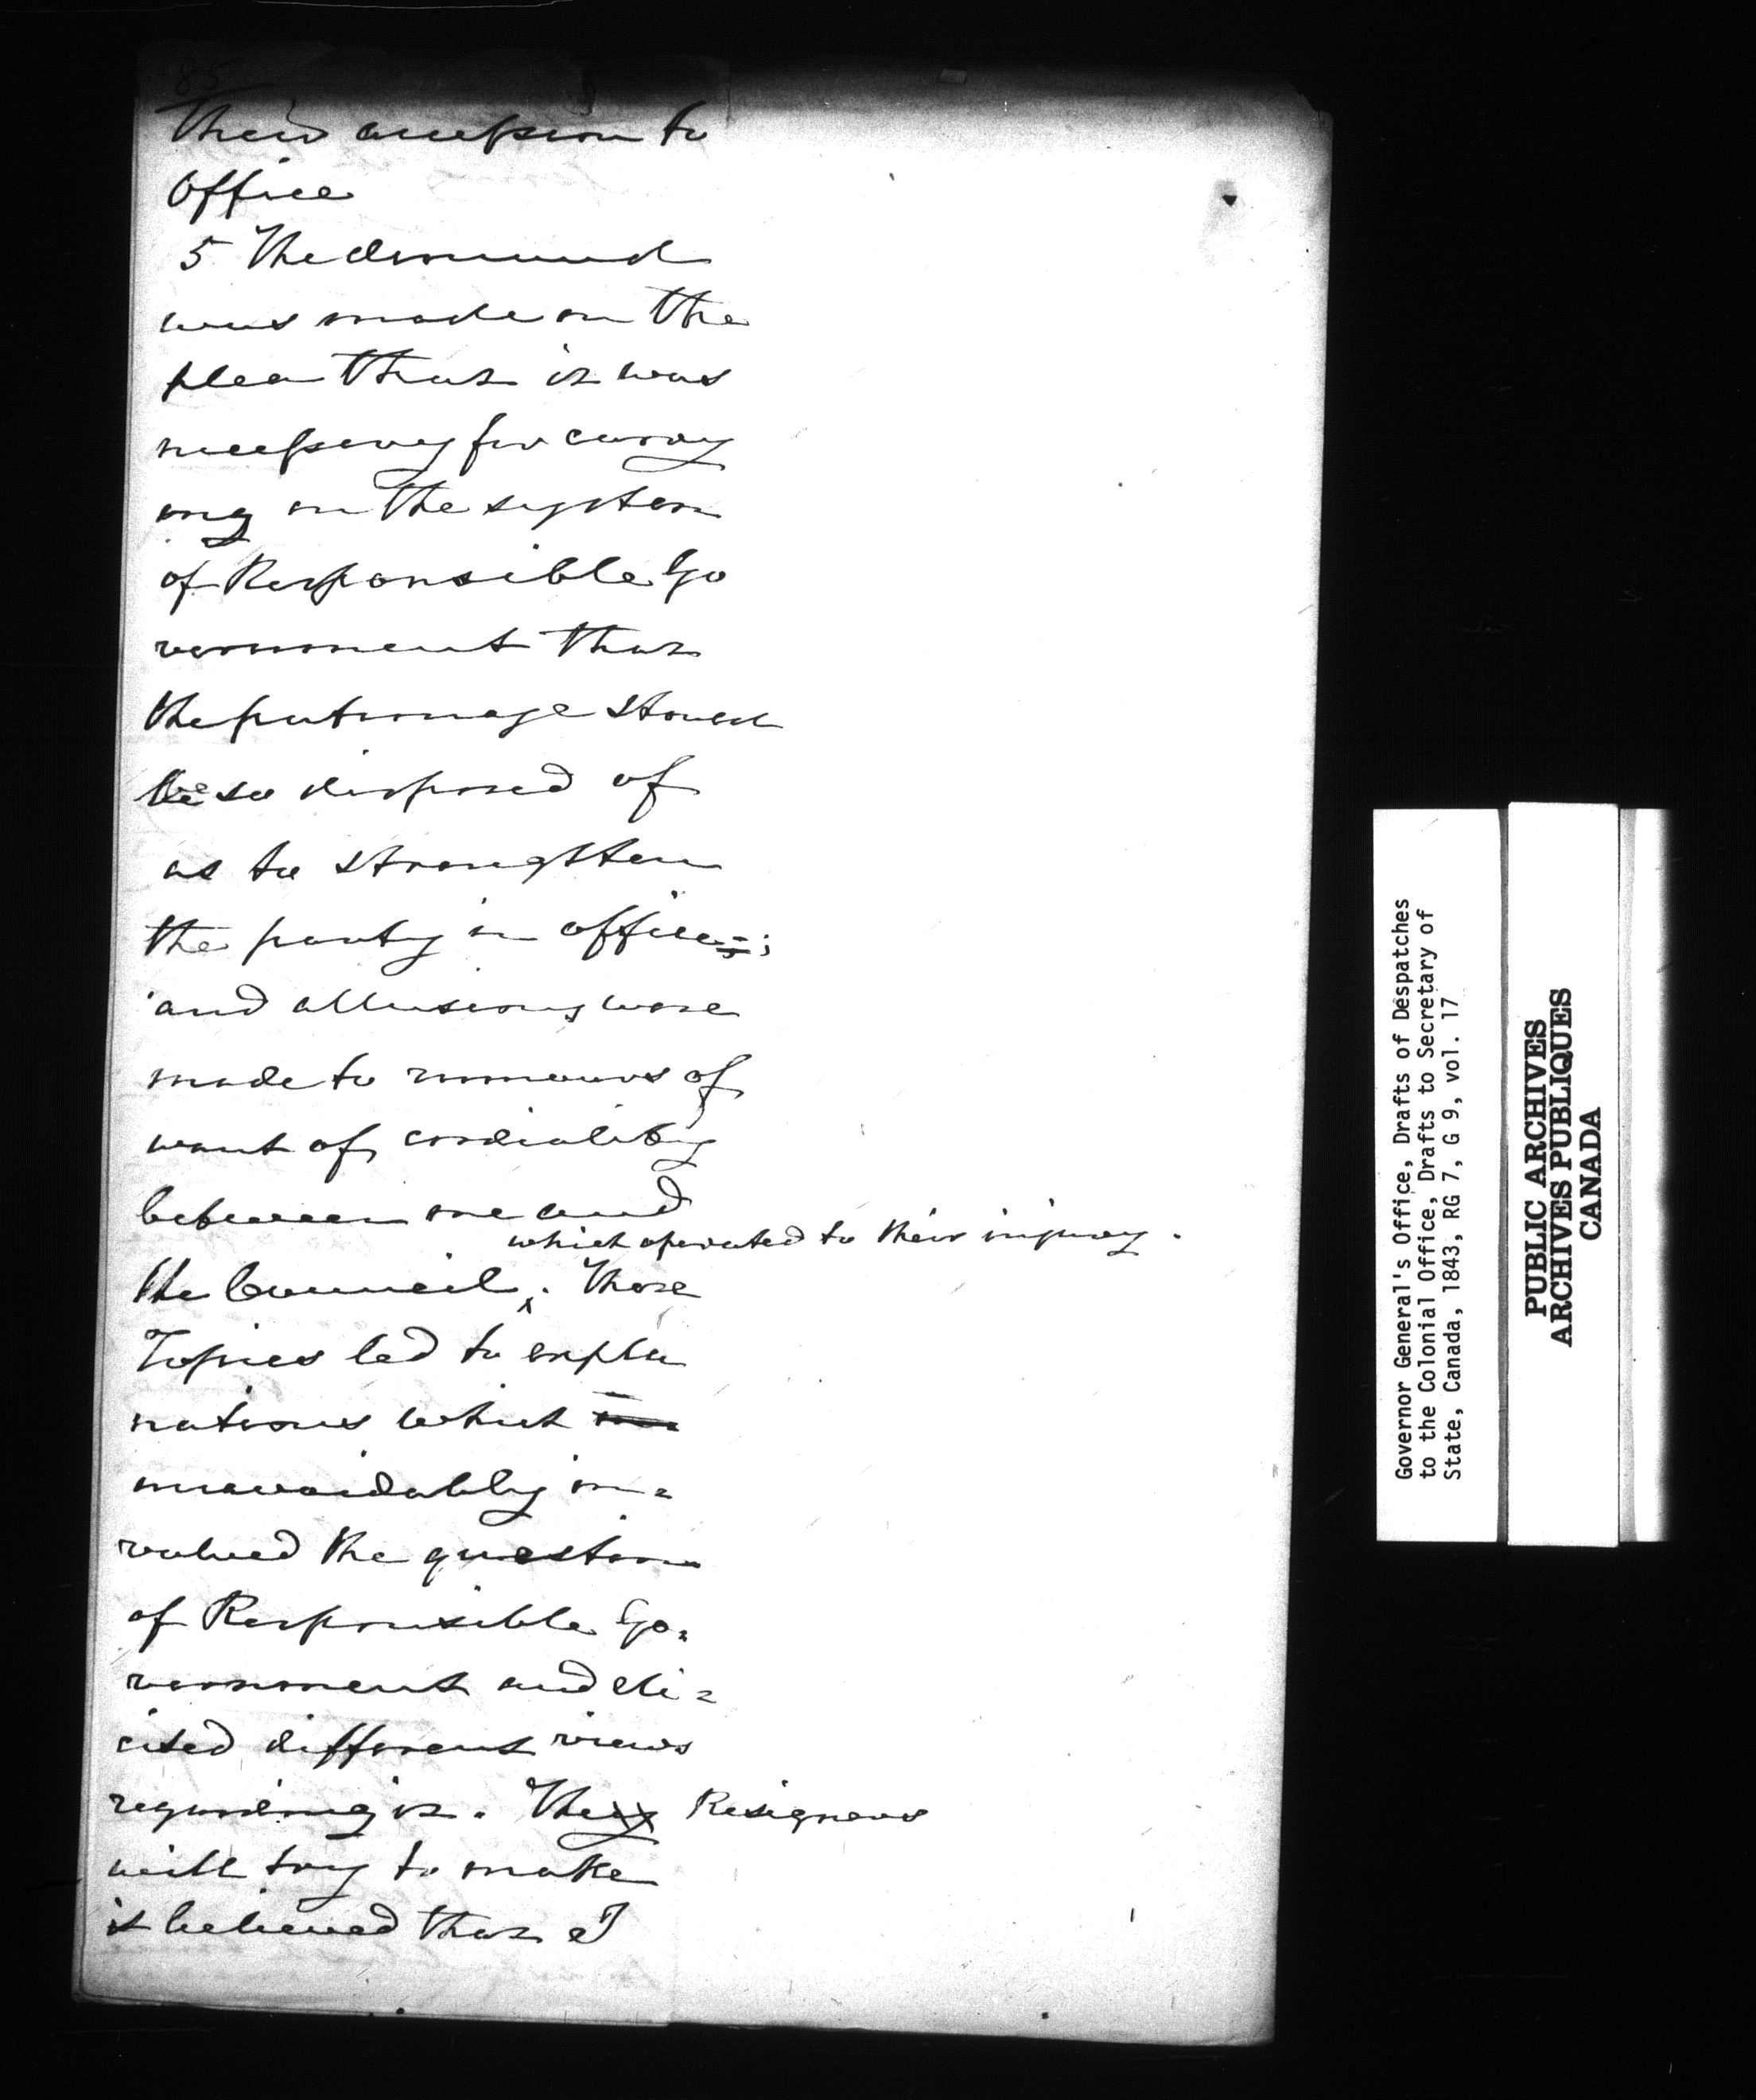 85
their accession to
office
5 The demand
was made on the
plea that it was
necessary for carry
ing on the system
of Responsible Go
vernment that
the patronage should
be so disposed of
as to strengthen
the party in office;
and allusions were
made to rumours of
want of cordiality
between me and
which operated to their injury.
the Council. These
Topics led to expla
nations which
unavoidably in=
volved the question
of Responsible Go=
vernment and eli=
cited different views
regarding it. They Resigners
will try to make
it believed that I
Governor General's Office, Drafts of Despatches
to the Colonial Office, Drafts to Secretary of
State, Canada, 1843, RG 7, G 9, vol. 17
PUBLIC ARCHIVES
ARCHIVES PUBLIQUES
CANADA